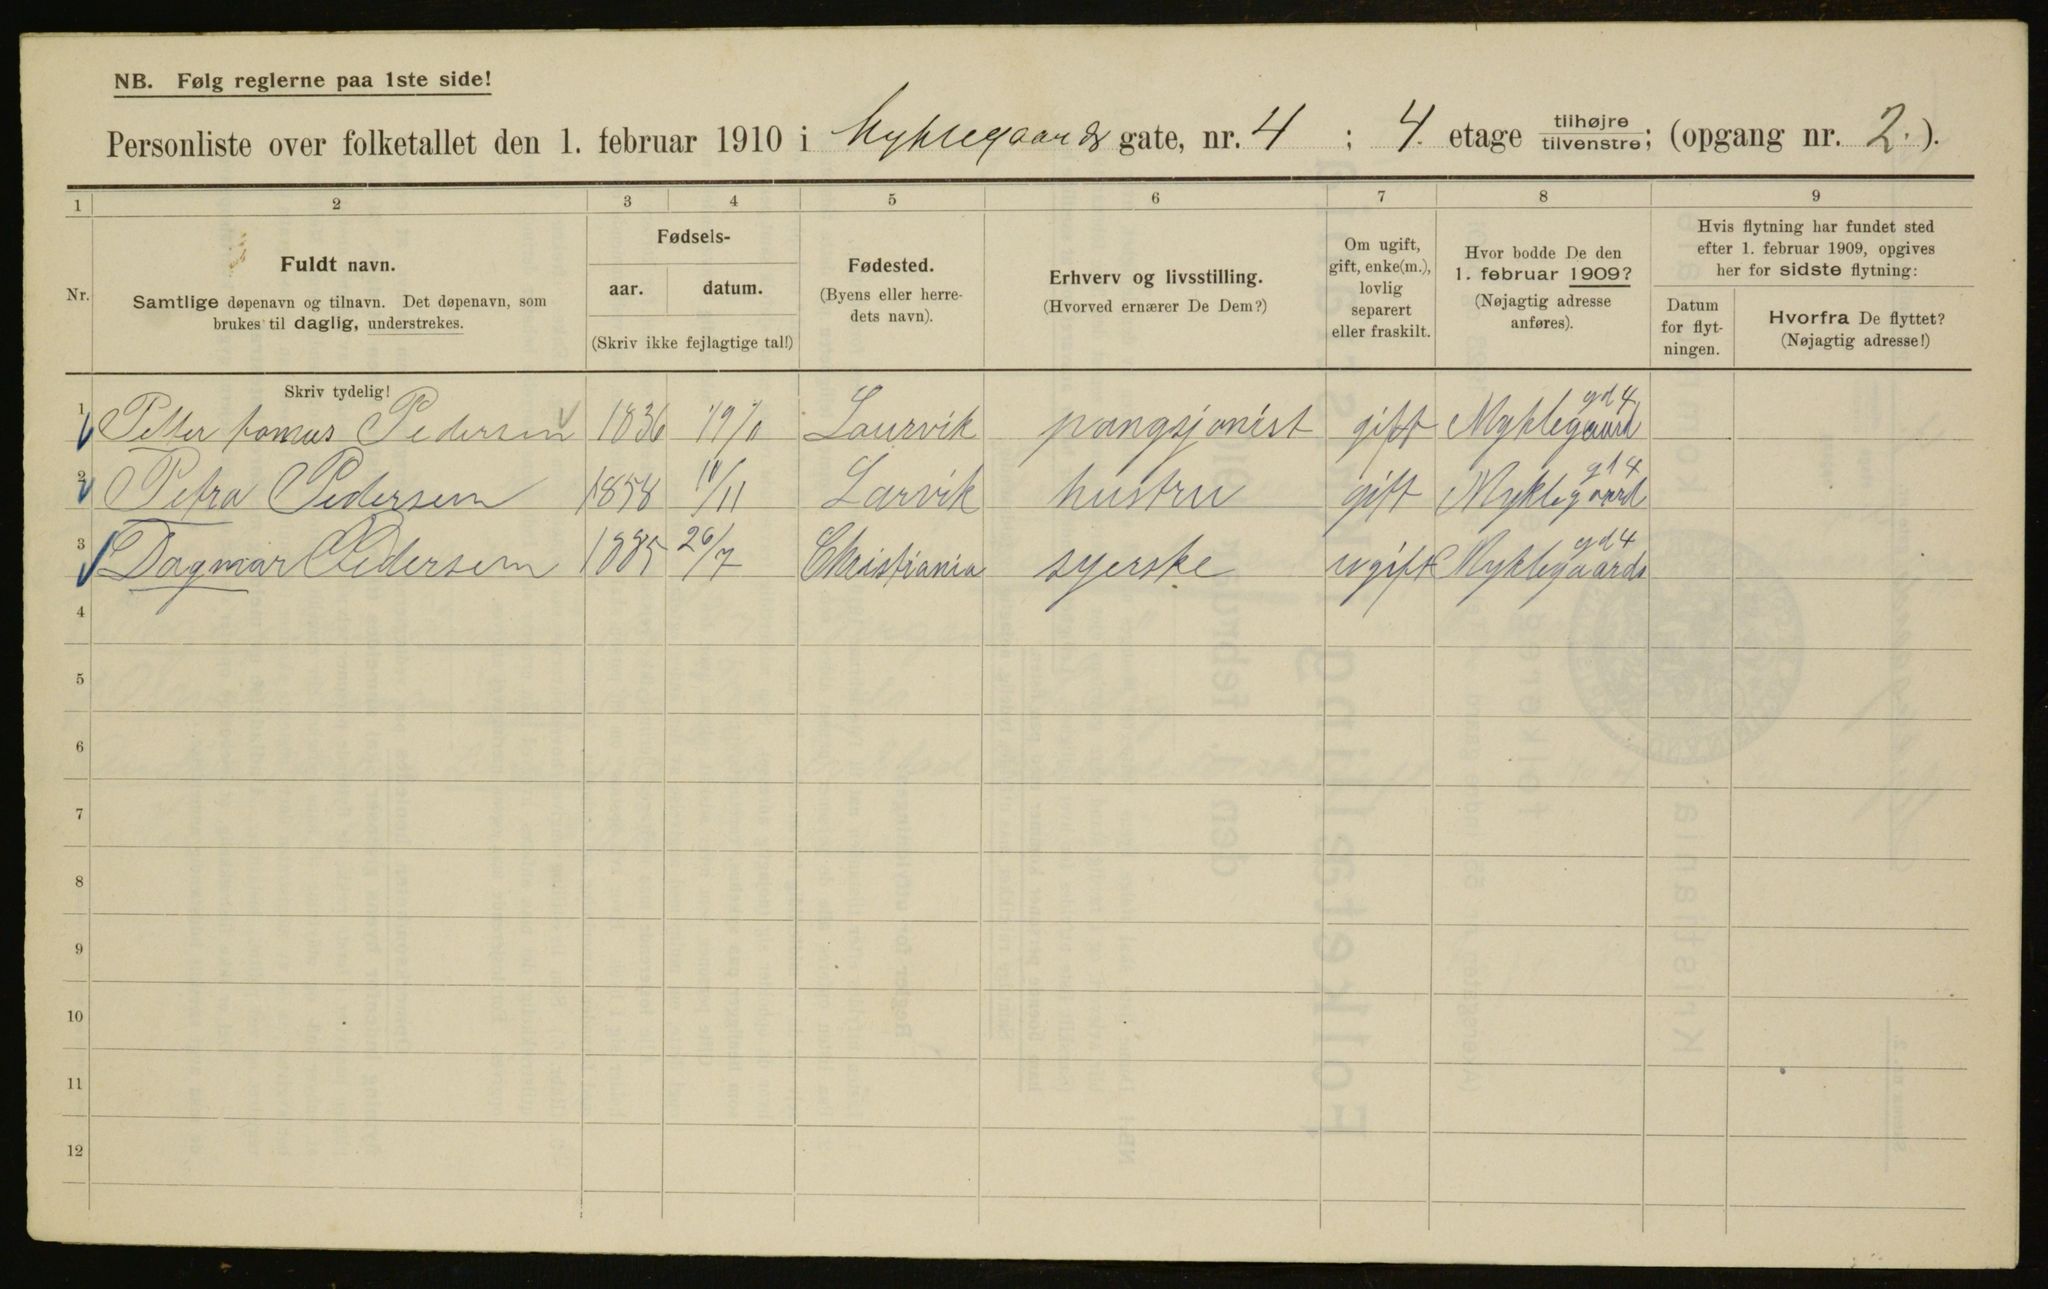 NB. Følg reglerne paa 1ste side!
Personliste over folketallet den 1. februar 1910 i Myklegaards gate, nr. 4 ; 4. etage tilhøjre tilvenstre; (opgang nr. 2. ).
1 2 3 4 5 6 7 8 9
Nr.
Fuldt navn.
Samtlige døpenavn og tilnavn. Det døpenavn, som
brukes til daglig, understrekes.
Fødsels-
aar. datum.
(Skriv ikke fejlagtige tal!)
Fødested.
(Byens eller herre-
dets navn).
Erhverv og livsstilling.
(Hvorved ernærer De Dem?)
Om ugift,
gift, enke(m.),
lovlig
separert
eller fraskilt.
Hvor bodde De den
1. februar 1909?
(Nøjagtig adresse
anføres).
Hvis flytning har fundet sted
efter 1. februar 1909, opgives
her for sidste flytning:
Datum
for flyt-
ningen.
Hvorfra De flyttet?
(Nøjagtig adresse!)
Skriv tydelig!
1 Petter Pedersen 1836 Laurvik pangsjonist gift Myklegaard gd 4
2 Petra Pedersen 1858 11/11 Larvik hustru gift Myklegaard gd 4
3 Dagmar Pedersen 1885 26/7 Christiania syerske ugift Myklegaards gd 4
4
5
6
7
8
9
10
11
12